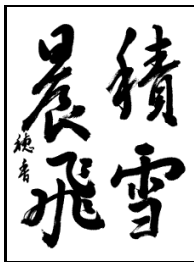 積雪
晨飛
穂香